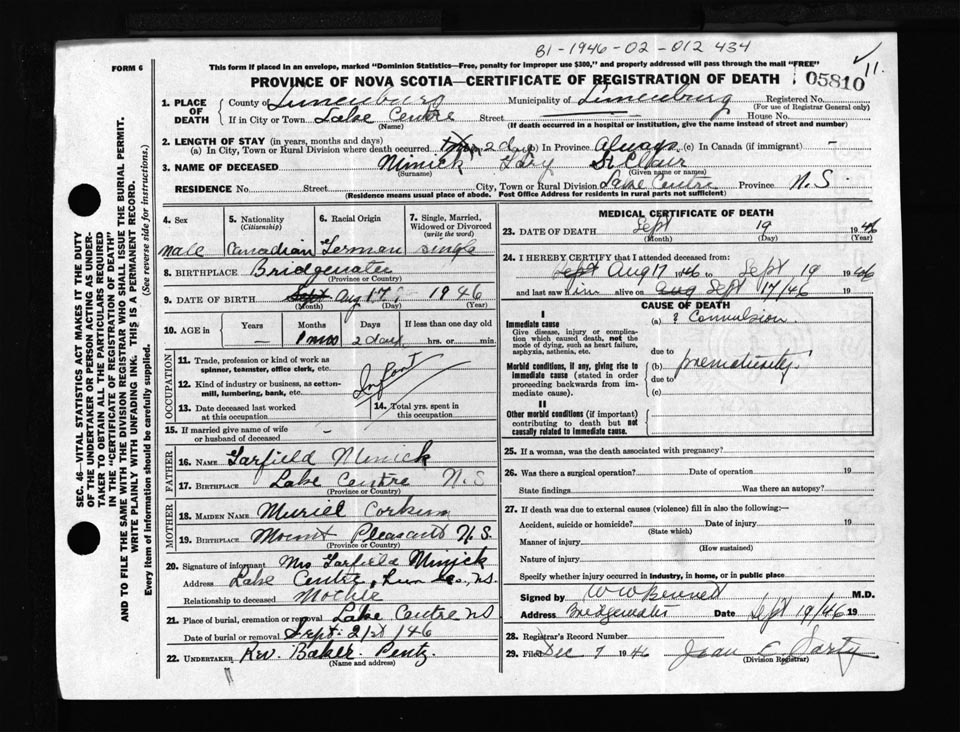 B1-1946-02-012434
FORM 6
This form if placed in an envelope, marked "Dominion Statistics—Free, penalty for improper use $300," and properly addressed will pass through the mail "FREE"
PROVINCE OF NOVA SCOTIA—CERTIFICATE OF REGISTRATION OF DEATH
05810
11.
1. PLACE OF DEATH
County of Lunenburg Municipality of Lunenburg Registered No.
(For use of Registrar General only)
If in City or Town Lake Centre Street House No.
(Name) (If death occurred in a hospital or institution, give the name instead of street and number)
2. LENGTH OF STAY (in years, months and days)
(a) In City, Town or Rural Division where death occurred 2 days (b) In Province always (c) In Canada (if immigrant) -
3. NAME OF DECEASED Minick Gary St Clair
(Surname) (Given name or names)
RESIDENCE No. Street City, Town or Rural Division Lake Centre Province N.S.
(Residence means usual place of abode. Post Office Address for residents in rural parts not sufficient)
SEC. 46—VITAL STATISTICS ACT MAKES IT THE DUTY
OF THE UNDERTAKER OR PERSON ACTING AS UNDER-
TAKER TO OBTAIN ALL THE PARTICULARS REQUIRED
IN THE "CERTIFICATE OF REGISTRATION OF DEATH"
AND TO FILE THE SAME WITH THE DIVISION REGISTRAR WHO SHALL ISSUE THE BURIAL PERMIT.
WRITE PLAINLY WITH UNFADING INK. THIS IS A PERMANENT RECORD.
Every item of Information should be carefully supplied. (See reverse side for instructions.)
4. Sex
male
5. Nationality
(Citizenship)
Canadian
6. Racial Origin
German
7. Single, Married, Widowed or Divorced
(write the word)
single
8. BIRTHPLACE Bridgewater
(Province or Country)
9. DATE OF BIRTH Sept Aug 17 1946
(Month) (Day) (Year)
10. AGE in
Years Months Days If less than one day old
— 1 mos 2 days hrs. or min.
OCCUPATION
11. Trade, profession or kind of work as
spinner, teamster, office clerk, etc.
Infant
12. Kind of industry or business, as cotton-
mill, lumbering, bank, etc.
13. Date deceased last worked
at this occupation
14. Total yrs. spent in
this occupation
15. If married give name of wife
or husband of deceased -
FATHER
16. NAME Garfield Minick
17. BIRTHPLACE Lake Centre N.S
(Province or Country)
MOTHER
18. MAIDEN NAME Muriel Corkum
19. BIRTHPLACE Mount Pleasant N.S.
(Province or Country)
20. Signature of informant Mrs Garfield Minick
Address Lake Centre, Lun Co., N.S.
Relationship to deceased Mother
21. Place of burial, cremation or removal Lake Centre NS
Date of burial or removal Sept. 21st /46
22. UNDERTAKER Rev. Baker. Pentz.
(Name and address)
MEDICAL CERTIFICATE OF DEATH
23. DATE OF DEATH Sept 19 1946
(Month) (Day) (Year)
24. I HEREBY CERTIFY that I attended deceased from:
Sept Aug 17 1946 to Sept 19 1946
and last saw him alive on Aug Sept 17/46 19
CAUSE OF DEATH
I
Immediate cause
Give disease, injury or complica-
tion which caused death, not the
mode of dying, such as heart failure,
asphyxia, asthenia, etc.
(a) ? Convulsion.
due to
Morbid conditions, if any, giving rise to
immediate cause (stated in order
proceeding backwards from im-
mediate cause).
(b) prematurity.
due to
(c)
II
Other morbid conditions (if important)
contributing to death but not
causally related to immediate cause.
25. If a woman, was the death associated with pregnancy?
26. Was there a surgical operation? Date of operation 19
State findings Was there an autopsy?
27. If death was due to external causes (violence) fill in also the following:—
Accident, suicide or homicide? Date of injury 19
(State which)
Manner of injury
(How sustained)
Nature of injury
Specify whether injury occurred in industry, in home, or in public place
Signed by W W Bennett M.D.
Address Bridgewater Date Sept 19/46 19
28. Registrar's Record Number
29. Filed Dec 7 1946 Joan E. Sarty
(Division Registrar)